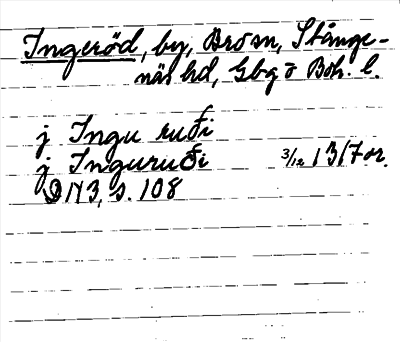 Ingeröd, by, Bro sn, Stånge-
näs hd, Gbg o Boh. l.
j Ingu ruði
j Inguruði 3/12 1317 or.
DN 3, s. 108